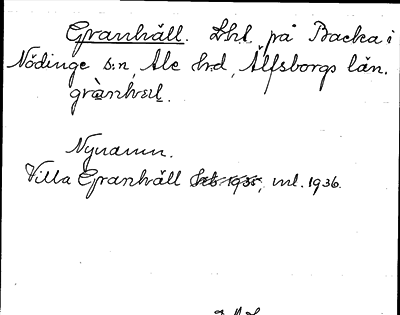 Granhäll. Lht på Backa i
Nödinge s:n, Ale hd, Älfsborgs län.
grànhɛl.
Nynamn.
Villa Granhäll, ml. 1936.